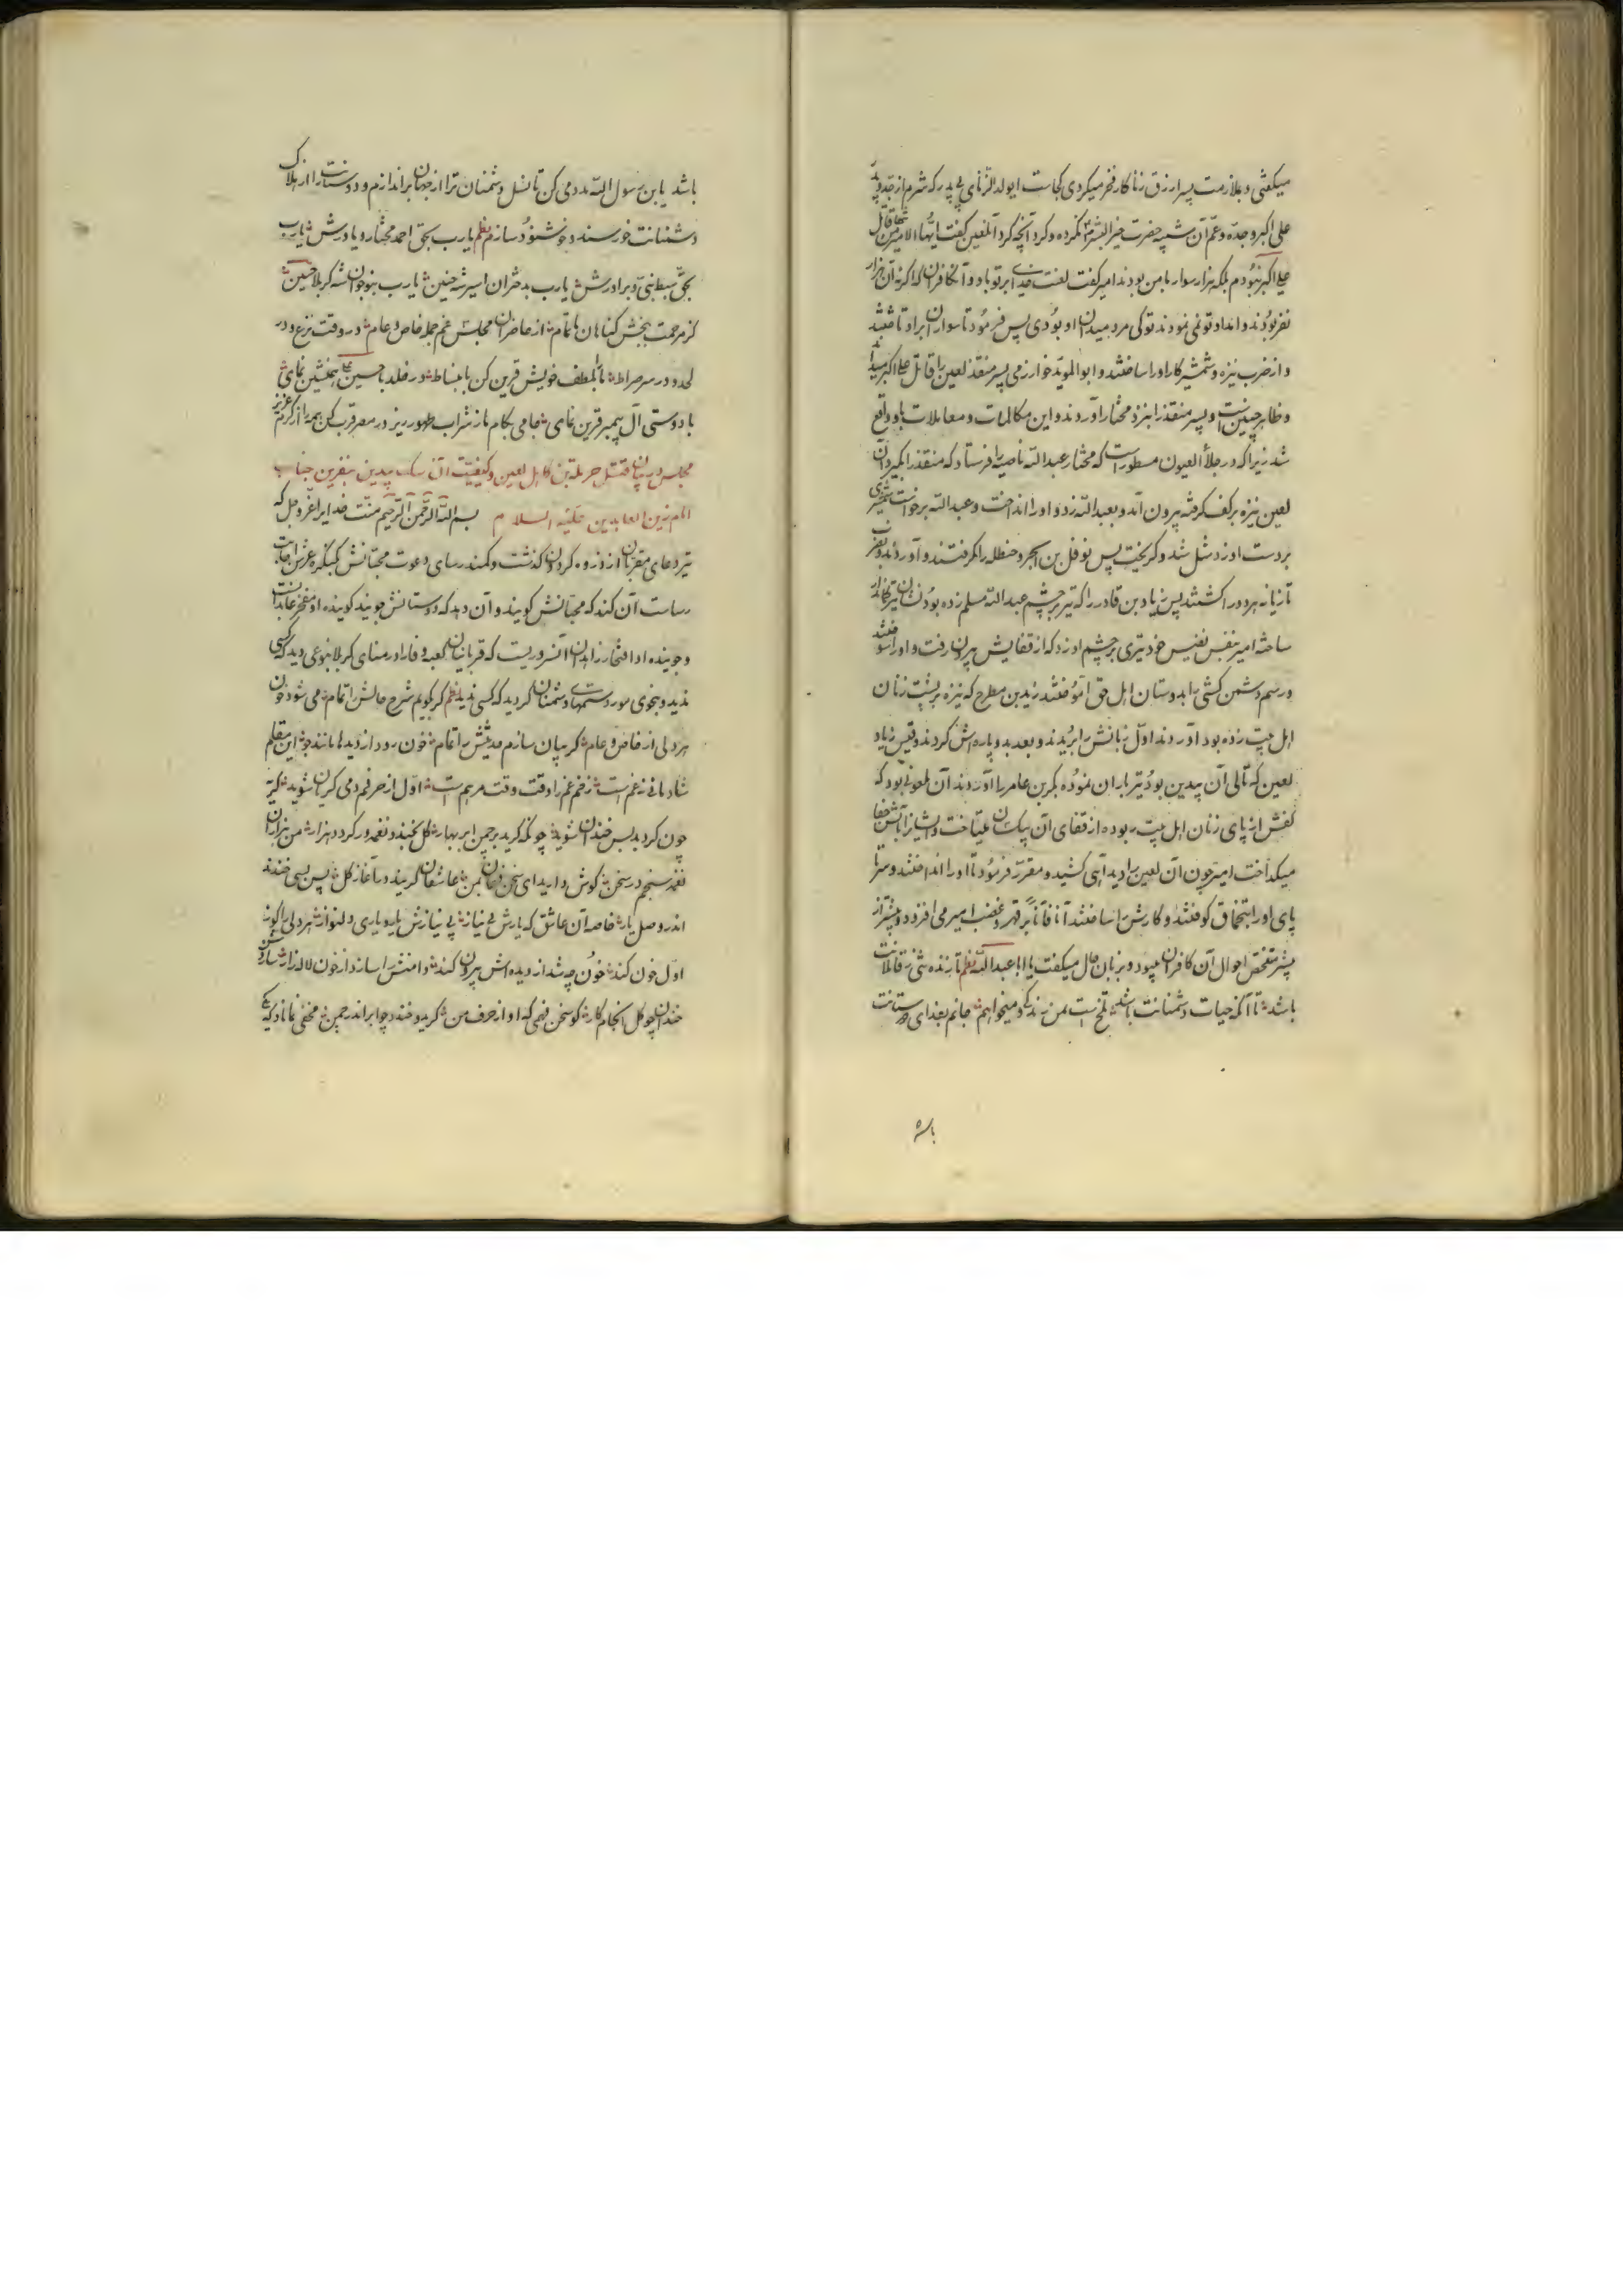 میکفتی و بملازمت پسر ازرق زناکار فخر میکردی کجاست ای ولد الزنای بی پدر که شرم از جد و پدر
علی اکبر و جده و عم آن شبیه حضرت خیر البشر نکرده و کرد آنچه کرد آن لعین کفت ایها الامیر من تنها قاتل
علی اکبر نبودم بلکه هزار سوار با من بودند امیر کفت لعنت خدای بر تو باد و آن کافران که اکر نه آن هزار
نفر بودند و امداد تو نمی نمودند تو کی مرد میدان او بودی پس فرمود تا سواران بر او تاختند
و از ضرب نیزه و شمشیر کار او را ساختند و ابو الموید خوارزمی پسر منقذ لعین را قاتل علی اکبر میداند
و ظاهر چنین است و پسر منقذ را نزد مختار آوردند و این مکالمات و معاملات با او واقع
شد زیرا که در جلاء العیون مسطور است که مختار عبد الله ناصیه را فرستاد که منقذ را بکیرد آن
لعین نیزه بر کف کرفته بیرون آمد و بعبد الله زد و او را انداخت و عبد الله برخواست شمشیری
بر دست او زد شل شد و کریخت پس نوفل بن ابجر و حنظله را کرفتند و آوردند و بضرب
تازیانه هر دو را کشتند پس زیاد بن قادر را که تیر بر چشم عبد الله مسلم زده بود نشان تیر
ساخته امیر بنفس نفیس خود تیری بر چشم او زد که از قفایش بیرون رفت و او را سوختند
و رسم دشمن کشی را بدوستان اهل حق آموختند زید بن مطرح که نیزه بر پشت زنان
اهل بیت زده بود آوردند اول زبانش را بریدند و بعد بدو پاره اش کردند و قیس زیاد
لعین که تالی آن بیدین بود تیر باران نموده بکر بن عامر را آوردند آن ملعونی بود که
کفش از پای زنان اهل بیت ربوده از قفای آن بیکسان میتاخت و ایشان را بآتش جفا
میکداخت امیر چون آن لعین را دید آهی کشید و مقرر فرمود تا او را انداختند و سر تا
پای او را بتخماق کوفتند و کارش را ساختند آنا فآنا بر قهر و غضب امیر می افزود و پیشتر از
پیشتر تفحص احوال آن کافران مینمود و بزبان حال میکفت یا ابا عبد الله نظم تا زنده شئ ز قاتلانت
باشد تا آنکه حیات دشمنانت باشد تلخ است بمن زندکی و میخواهم جانم بفدای دوستانت
باشد یا بن رسول الله مددمی کن تا نسل دشمنان ترا از جهان براندازم و دوستانت را از هلاک
دشمنانت خورسند و خوشنود سازم نظم یا رب بحق احمد مختار و یاورش یا رب
بحق سبط نبی و برادرش یا رب بدختران اسیر شه حنین یا رب بنوجوان شه کربلا حسین
کز مرحمت ببخش کناهان ما تمام از حاضران مجلس غم جمله خاص و عام در وقت نزع و در
لحد و در سر صراط ما را بلطف خویش قرین کن بانبساط در خلد با حسین علی همنشین نمای
با دوستی آل پیمبر قرین نمای جامی بکام ما ز شراب طهور ریز در مصر قرب کن همه را از کرم عزیز
مجلس در بیان قتل حرمله بن کاهل لعین و کیفیت آن سک بیدین بنفرین جناب
امام زین العابدین علیه السلام بسم الله الرحمن الرحیم منت خدایرا عز و جل که
تیر دعای مقربان از ذروه کردون کذشت و کمند رسای دعوت محبانش بکنکره عرش اجابت
رساست آن کند که محبانش کویند و آن دهد که دوستانش جویند کوینده او مفخر عابدانست
و جوینده او افتخار زاهدان آن سروریست که قربانیان کعبه وفا را در منای کربلا بنوعی دید که کسی
ندید و بنحوی مورد ستمهای دشمنان کردید که کسی ندید نظم کر بکویم شرح حالش را تمام می شود خون
هر دلی از خاص و عام کر بیان سازم حدیثش را تمام خون رود از دیدها مانند جو این مقلم
شادمانی ز غم است زخم غم را وقت وقت مرهم است اول از حرفم دمی کریان شوید کریه
چون کردید پس خندان شوید چونکه کرید بر چمن ابر بهار کل بخندد نغمه ور کردد هزار من هزاران
نغمه سنجم در سخن کوش دارید ای سخن فهمان بمن عاشقان کریند در آغاز کل پس بسی خندند
اندر وصل یار خاصه آن عاشق که یارش بی نیاز بی نیازش یار و یاری دلنواز هر دلی را کو ز
اول خون کند خون چه شد از دیده اش بیرون کند دامنش را سازد از خون لاله زار سازدش
خندان چو کل انجام کار کو سخن فهمی که او از حرف من کرید و خندد چو ابر اندر چمن مخفی نماناد که